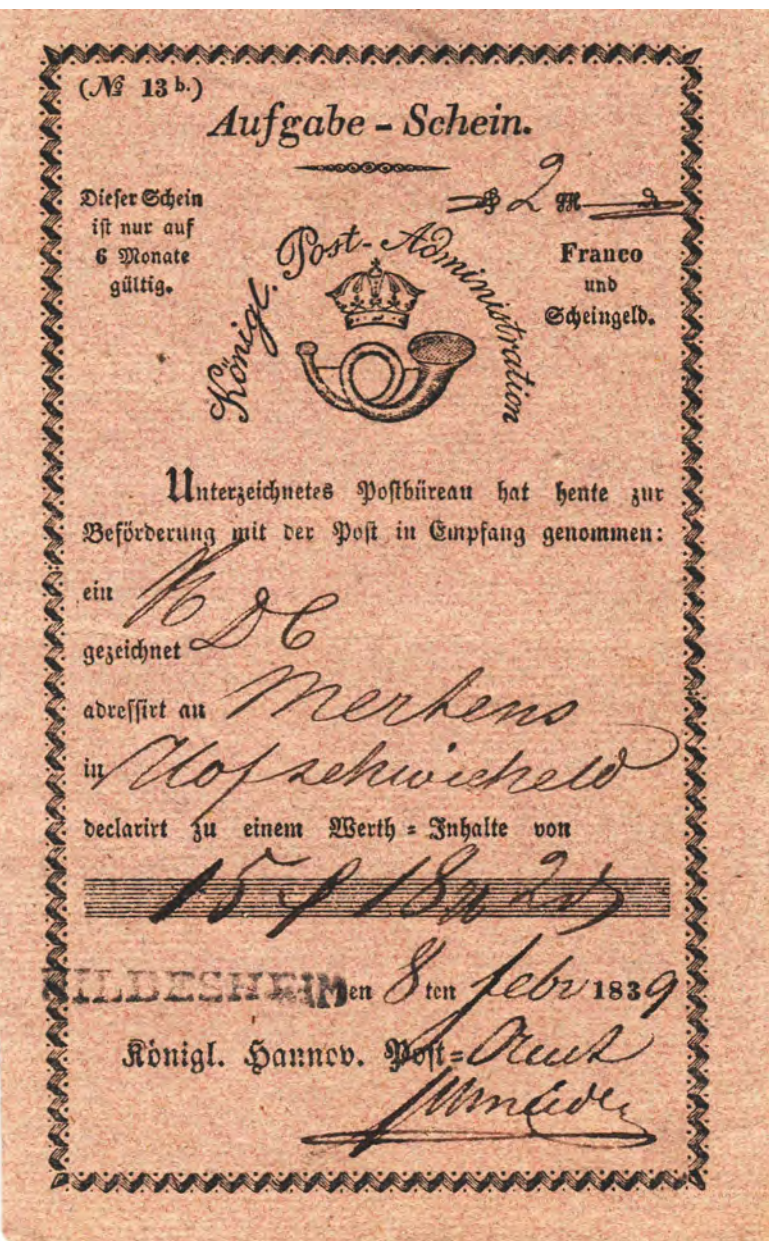 (№ 13 b.)
Aufgabe - Schein.
Dieser Schein
ist nur auf
6 Monate
gültig.
2
Franco
und
Scheingeld.
Königl. Post-Administration
Unterzeichnetes Postbüreau hat heute zur
Beförderung mit der Post in Empfang genommen:
ein
gezeichnet DC
adressirt an Mertens
in Hofschwicheld
declarirt zu einem Werth = Inhalte von
15 18 2
HILDESHEIM den 8 ten Febr 1839
Königl. Hannov. Post=Amt